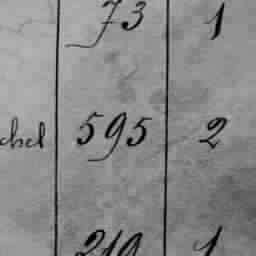 73 1
chel 595 2
219 1